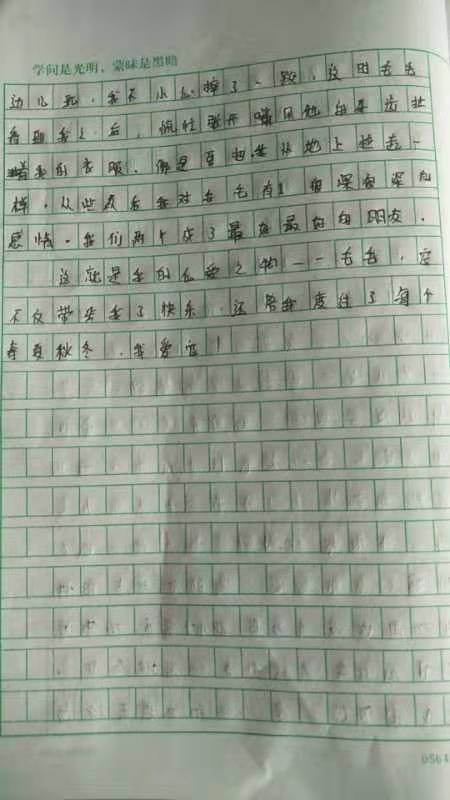 学问是光明，蒙昧是黑暗
边儿玩，我不小心摔了一跤，这时毛毛
看到我之后，慌忙张开嘴用他的牙齿扯
着我的衣服，像是要把我从地上拉起一
样，从此以后我对毛毛有了很深很深的
感情。我们两个成了最好最好的朋友。
这就是我的心爱之物——毛毛，它
不仅带来我了快乐，还陪我度过了每个
春夏秋冬，我爱它！
0564